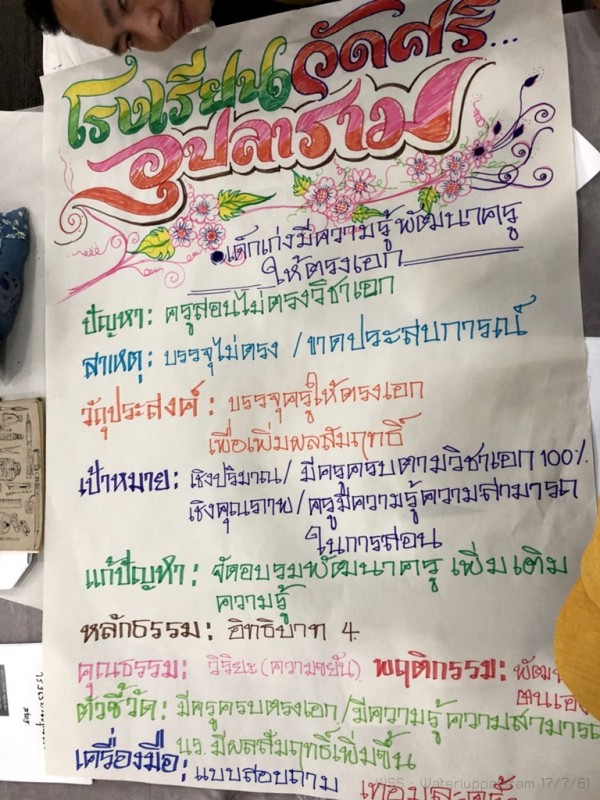 โรงเรียนวัดศรี...
อุปลาราม
เด็กเก่งมีความรู้พัฒนาครู
ให้ตรงเอก
ปัญหา: ครูสอนไม่ตรงวิชาเอก
สาเหตุ: บรรจุไม่ตรง / ขาดประสบการณ์
วัถุประสงค์: บรรจุครูให้ตรงเอก
เพื่อเพิ่มผลสัมฤทธิ์
เป้าหมาย: เชิงปริมาณ / มีครูครบตามวิชาเอก 100%
เชิงคุณภาพ / ครูมีความรู้ความสามารถ
ในการสอน
แก้ปัญหา: จัดอบรมพัฒนาครู เพิ่มเติม
ความรู้
หลักธรรม: อิทธิบาท 4
คุณธรรม: วิริยะ (ความขยัน) พฤติกรรม: พัฒ
ตนเอง
ตัวชี้วัด: มีครูครบตรงเอก / มีความรู้ความสามารถ
นร. มีผลสัมฤทธิ์เพิ่มขึ้น
เครื่องมือ: แบบสอบถาม
17/7/61